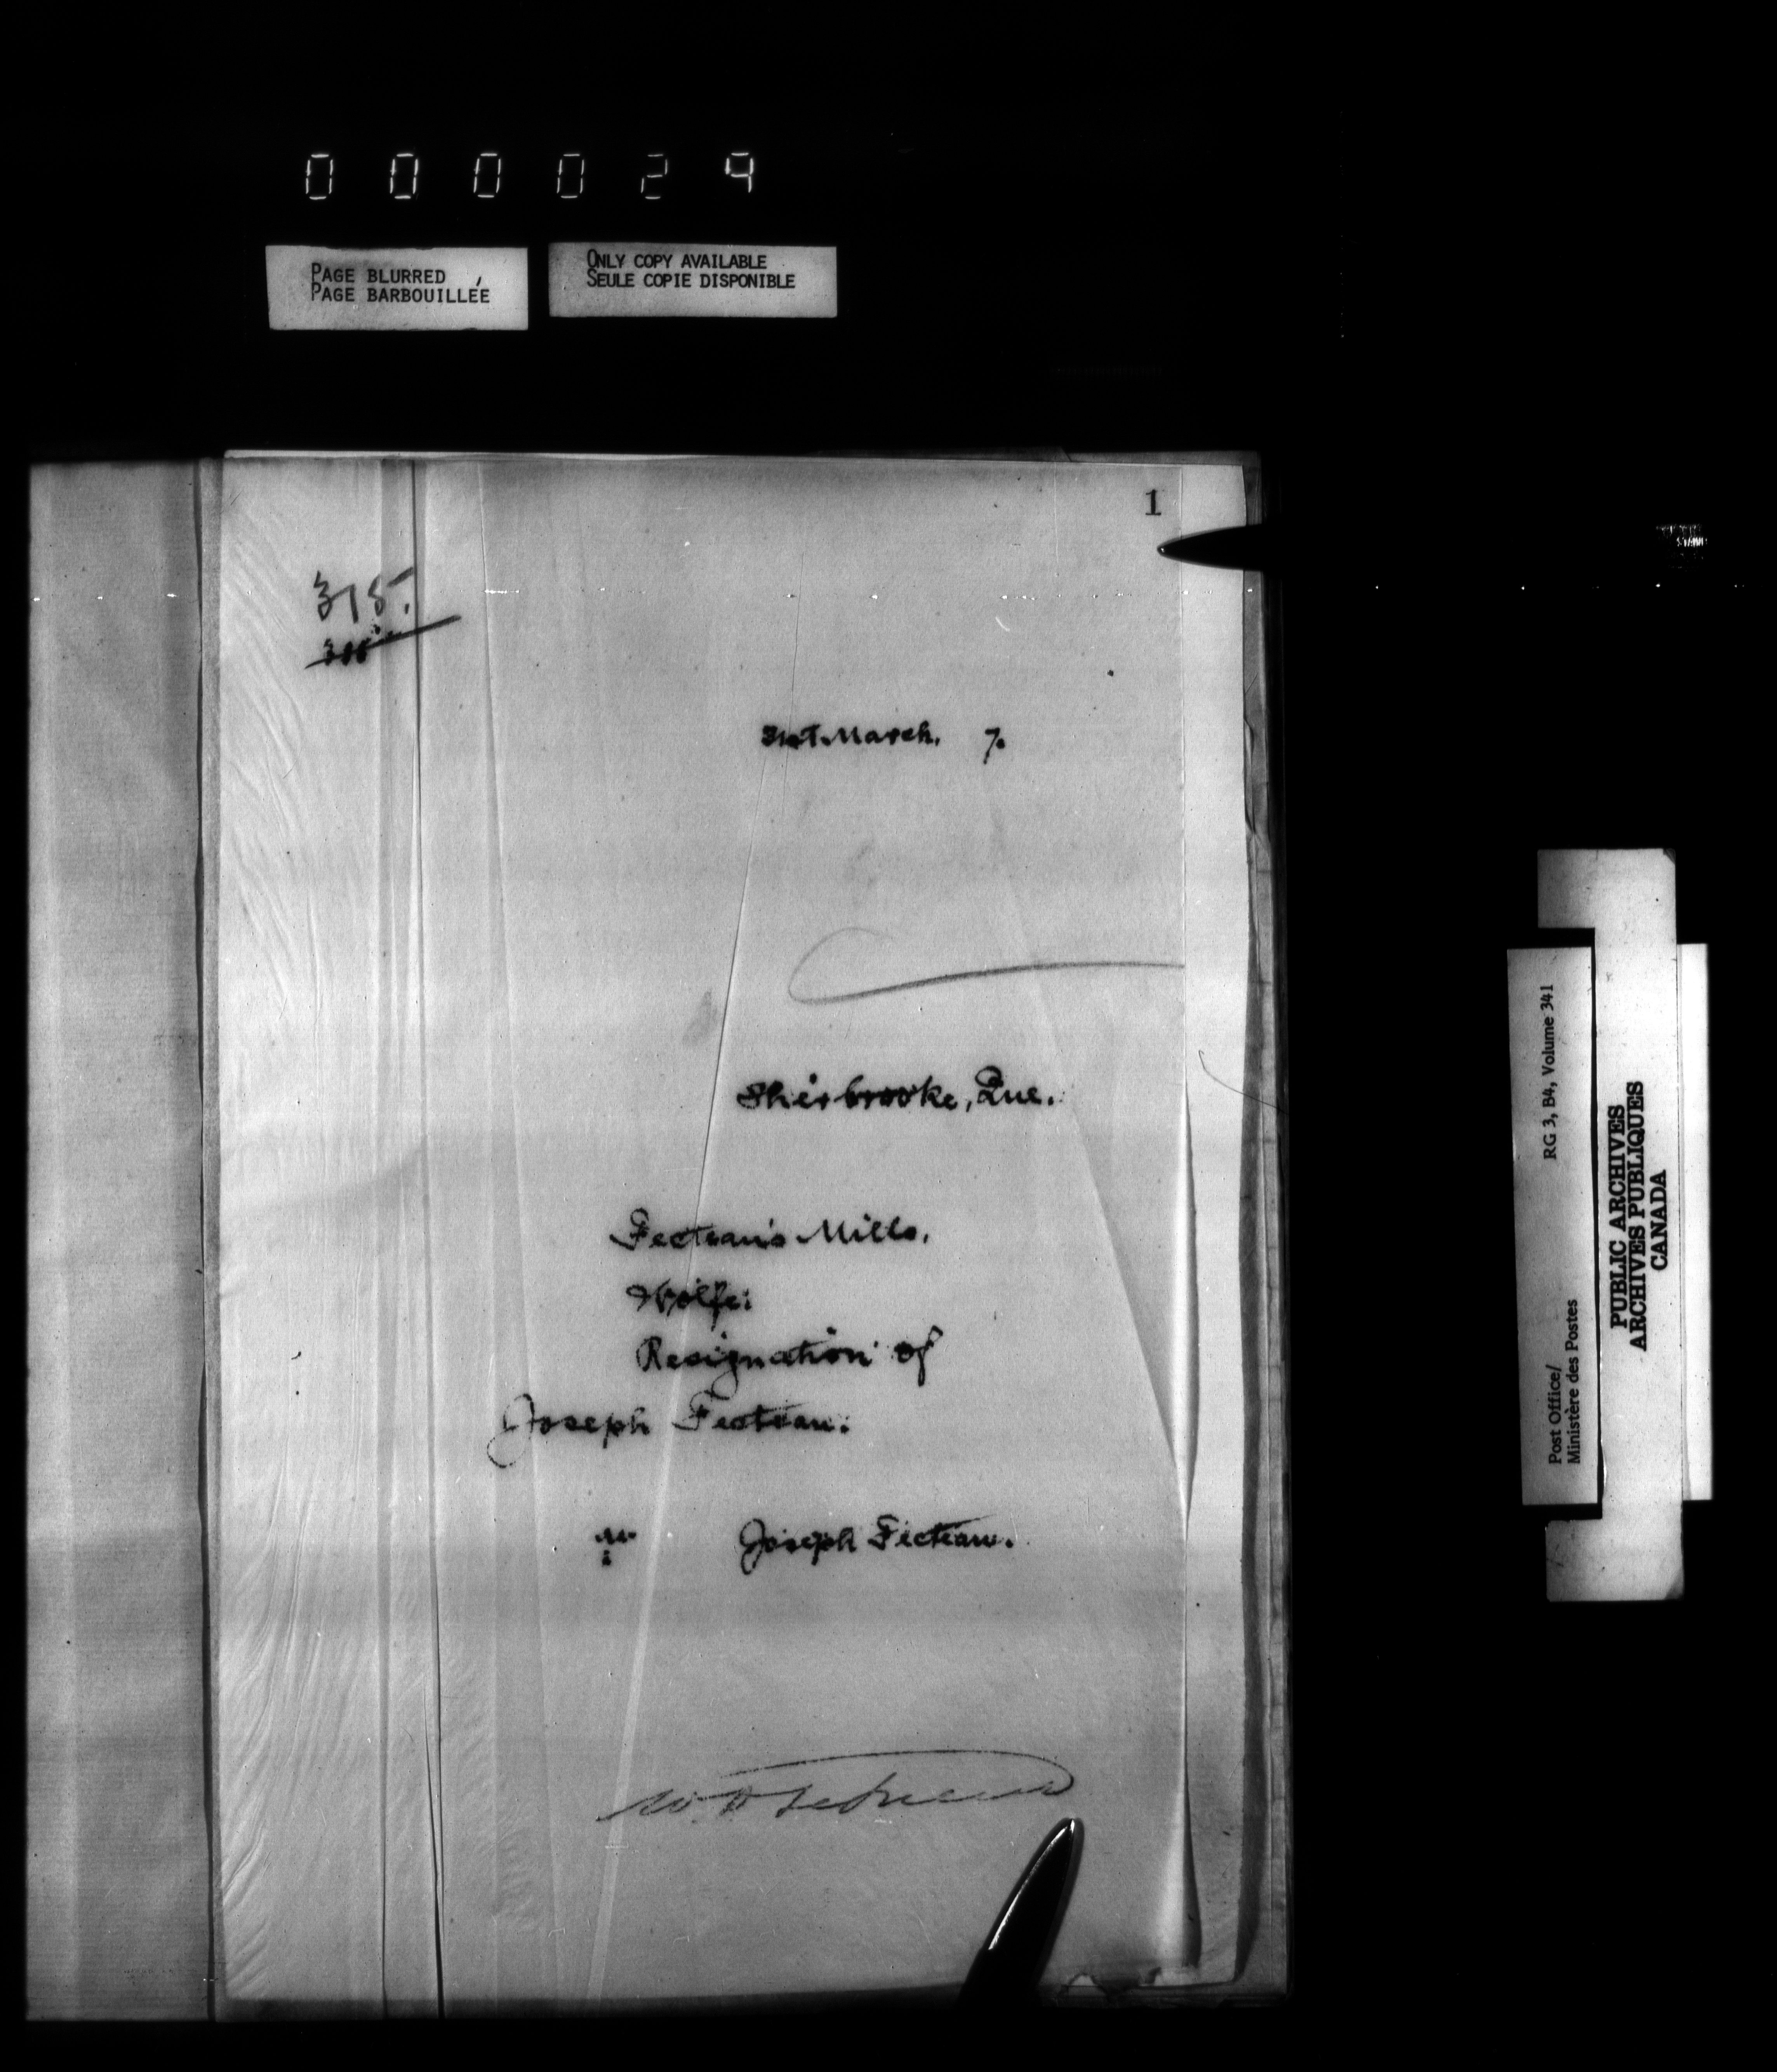 000029
PAGE BLURRED
PAGE BARBOUILLÉE
ONLY COPY AVAILABLE
SEULE COPIE DISPONIBLE
1
315.
31st March. 7.
Sherbrooke, Que.
Fecteau's Mills.
Wolfe:
Resignation of
Joseph Fecteau.
Joseph Fecteau.
Post Office/
Ministère des Postes
RG 3, B4, Volume 341
PUBLIC ARCHIVES
ARCHIVES PUBLIQUES
CANADA